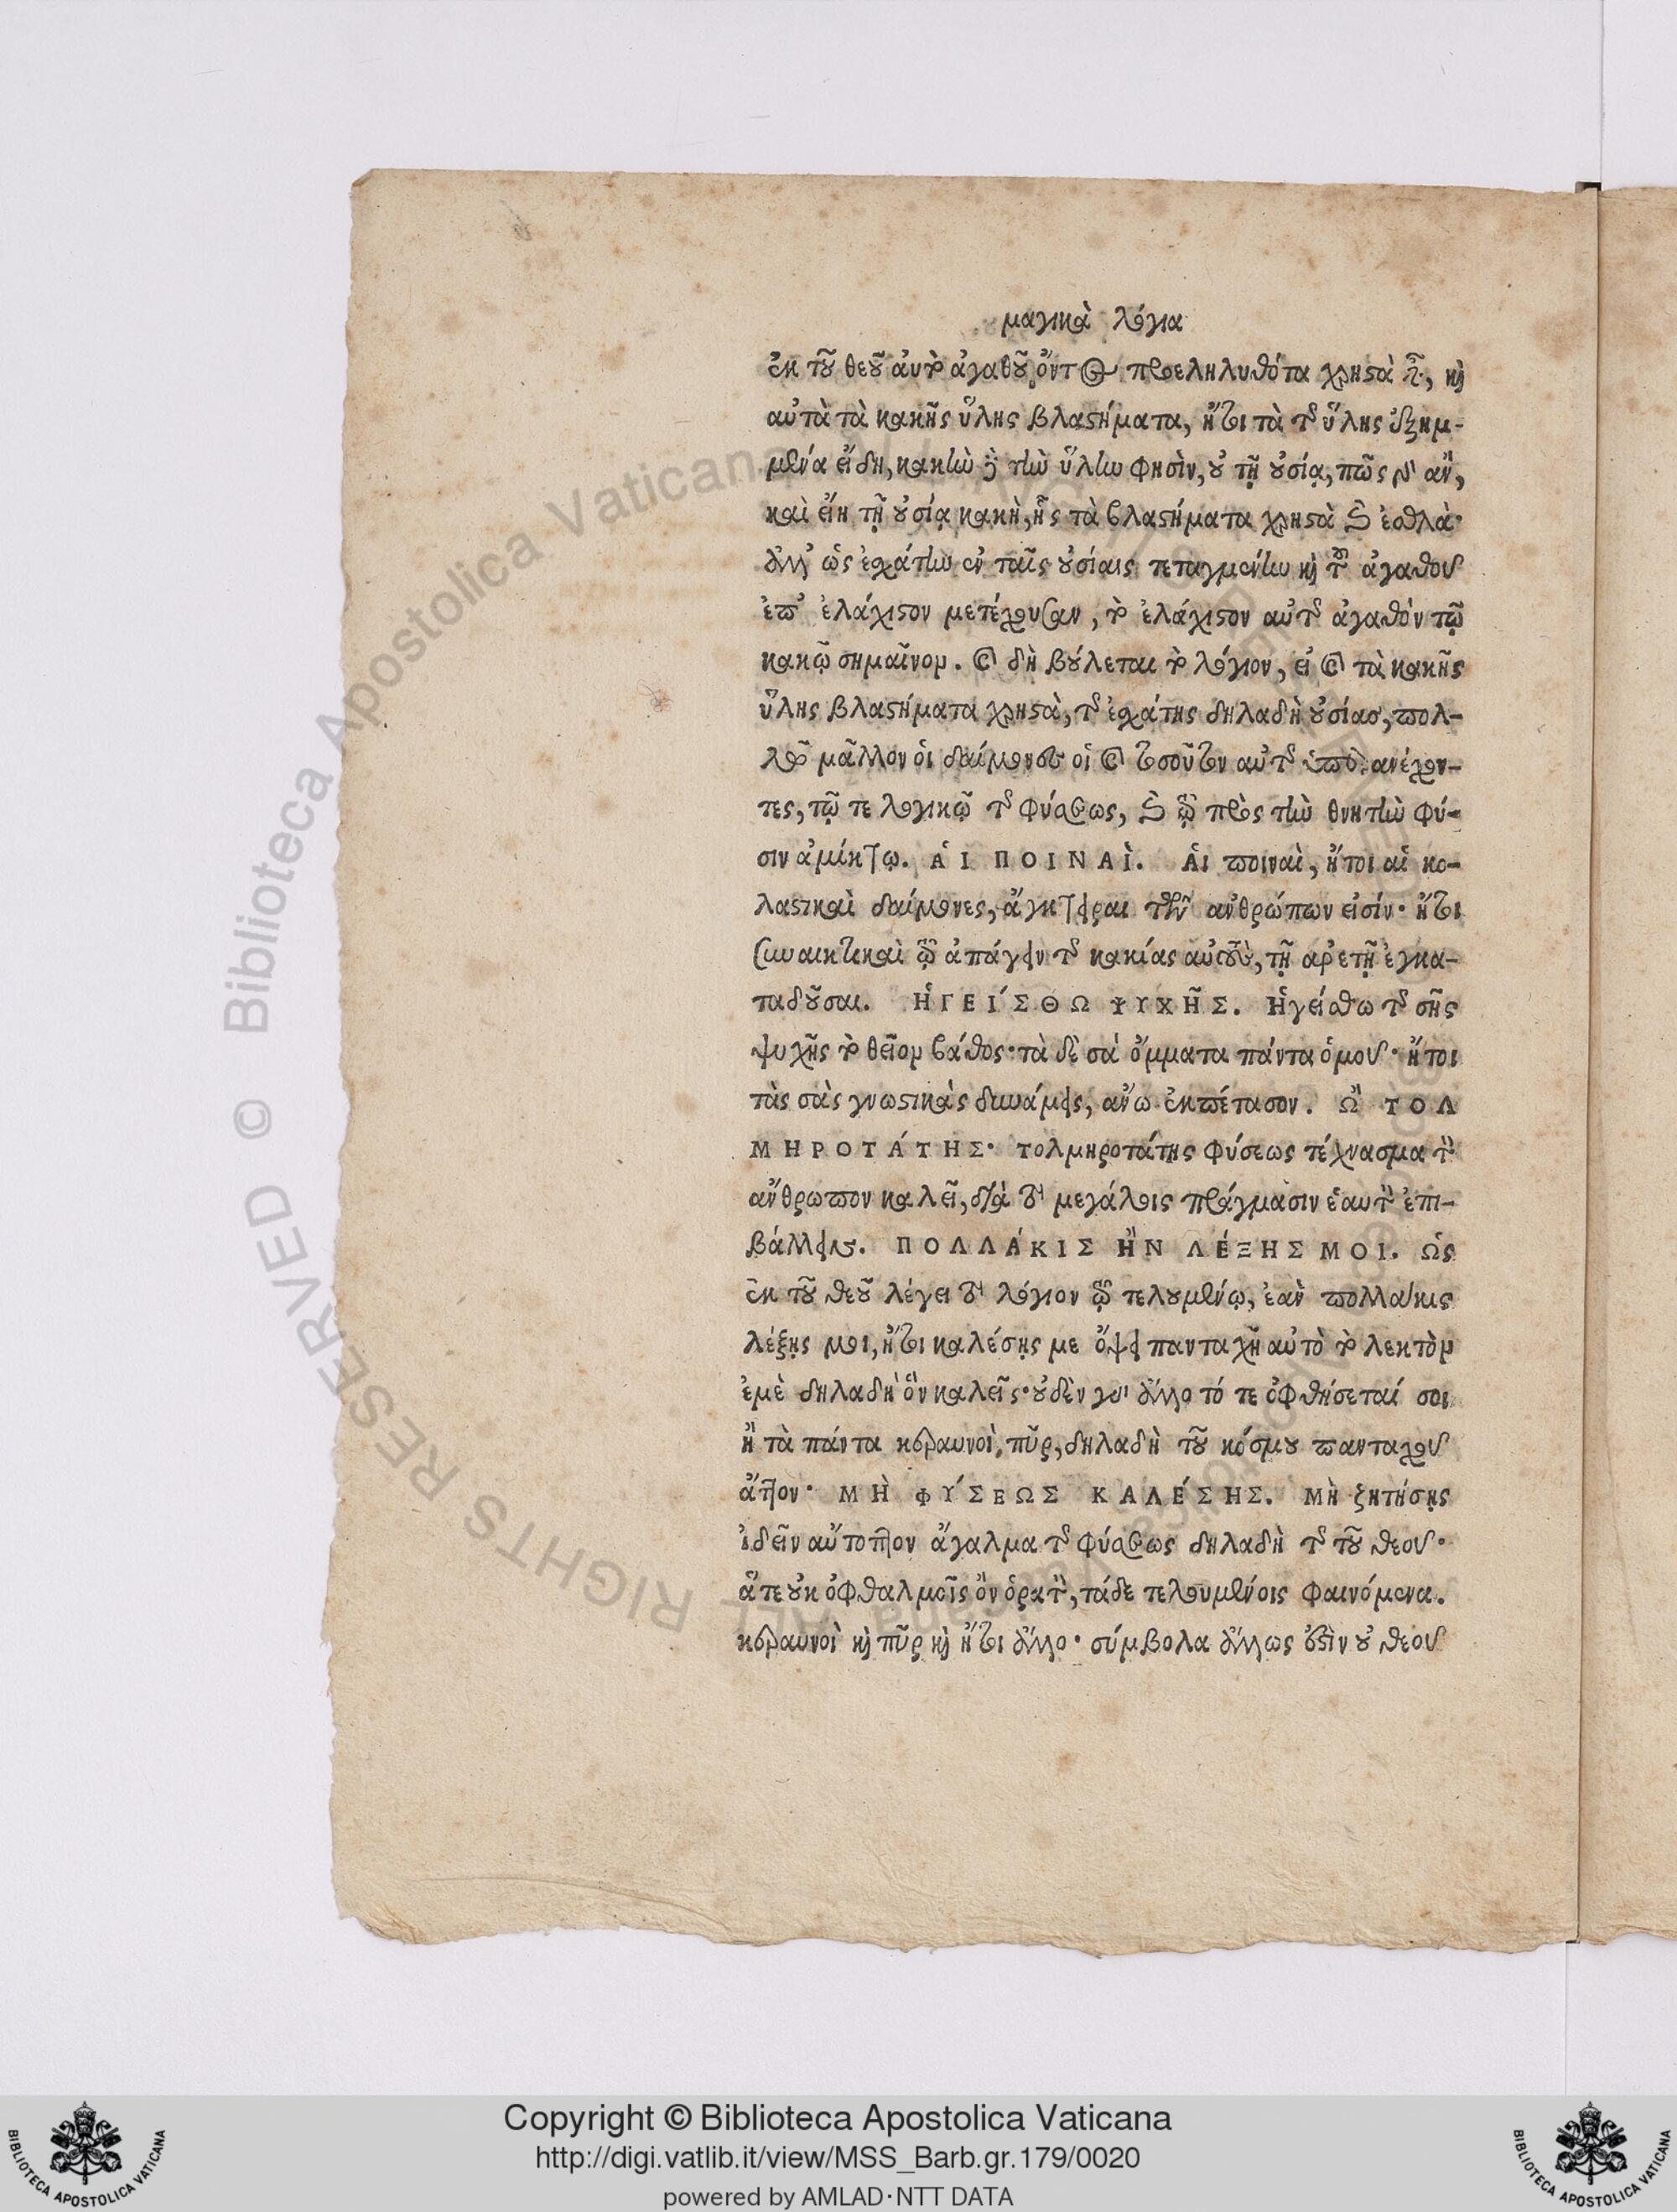 μαγικὰ λόγια
ἐκ τοῦ θεοῦ αὐτὸ ἀγαθοῦ ὄντος προεληλυθότα χρηστὰ εἶναι, καὶ
αὐτὰ τὰ κακῆς ὕλης βλαστήματα, ἤτοι τὰ τῆς ὕλης ἐξημ-
μένα εἴδη, κακὴν δὲ τὴν ὕλην φησὶν, οὐ τῇ οὐσίᾳ, πῶς γὰρ ἂν,
καὶ εἴη τῇ οὐσίᾳ κακὴ, ἧς τὰ βλαστήματα χρηστὰ καὶ ἐσθλὰ·
ἀλλ' ὡς ἐσχάτην ἐν ταῖς οὐσίαις τεταγμένην καὶ τοῦ ἀγαθοῦ
ἐπ' ἐλάχιστον μετέχουσαν, τὸ ἐλάχιστον αὐτῆς ἀγαθόν τῷ
κακῷ σημαῖνον. καὶ δὴ βούλεται τὸ λόγιον, εἰ καὶ τὰ κακῆς
ὕλης βλαστήματα χρηστὰ, τῆς ἐσχάτης δηλαδὴ οὐσίας, πολ-
λῷ μᾶλλον οἱ δαίμονες οἱ καὶ τοσοῦτον αὐτῆς ὑπερανέχον-
τες, τῷ τε λογικῷ τῆς φύσεως, καὶ τῷ πρὸς τὴν θνητὴν φύ-
σιν ἀμίκτῳ. ἉΙ ΠΟΙΝΑῚ. Ἁι ποιναὶ, ἤτοι αἱ κο-
λαστικαὶ δαίμονες, ἄγκτειραι τῶν ἀνθρώπων εἰσίν· ἤτοι
συνεκτικαὶ τῷ ἀπάγειν τῆς κακίας αὐτοὺς, τῇ ἀρετῇ ἐγκα-
ταδοῦσαι. ἩΓΕΙΣΘΩ ΨΥΧΗ͂Σ. Ἡγείσθω τῆς σῆς
ψυχῆς τὸ θεῖον βάθος· τὰ δὲ σά ὄμματα πάντα ὁμοῦ· ἤτοι
τὰς σὰς γνωστικὰς δυνάμεις, ἄνω ἐκπέτασον. Ὢ ΤΟΛ
ΜΗΡΟΤΆΤΗΣ· τολμηροτάτης φύσεως τέχνασμα τὸν
ἄνθρωπον καλεῖ, διὰ τὸ μεγάλοις πράγμασιν ἑαυτὸν ἐπι-
βάλλειν. ΠΟΛΛΆΚΙΣ ἪΝ ΛΈΞΗΣ ΜΟΙ. Ὡς
ἐκ τοῦ θεοῦ λέγει τὸ λόγιον τῷ τελουμένῳ, ἐὰν πολλάκις
λέξῃς μοι, ἤτοι καλέσῃς με ὄψει πανταχῆ αὐτὸ τὸ λεκτὸν
ἐμὲ δηλαδὴ ὃν καλεῖς· οὐδὲν γὰρ ἄλλο τό τε ὀφθήσεταί σοι
ἢ τὰ πάντα κεραυνοὶ, πῦρ, δηλαδὴ τοῦ κόσμου πανταχοῦ
ᾄττον· ΜῊ ΦΎΣΕΩΣ ΚΑΛΈΣΗΣ. Μὴ ζητήσῃς
ἰδεῖν αὔτοπτον ἄγαλμα τῆς φύσεως δηλαδὴ τῆς τοῦ θεοῦ·
ἅτε οὐκ ὀφθαλμοῖς ὂν ὁρατὸν, τάδε τελουμένοις φαινόμενα.
κεραυνοὶ καὶ πῦρ καὶ ἤτοι ἄλλο· σύμβολα ἄλλως ἐστὶν οὐ θεοῦ
Copyright © Biblioteca Apostolica Vaticana
http://digi.vatlib.it/view/MSS_Barb.gr.179/0020
powered by AMLAD·NTT DATA